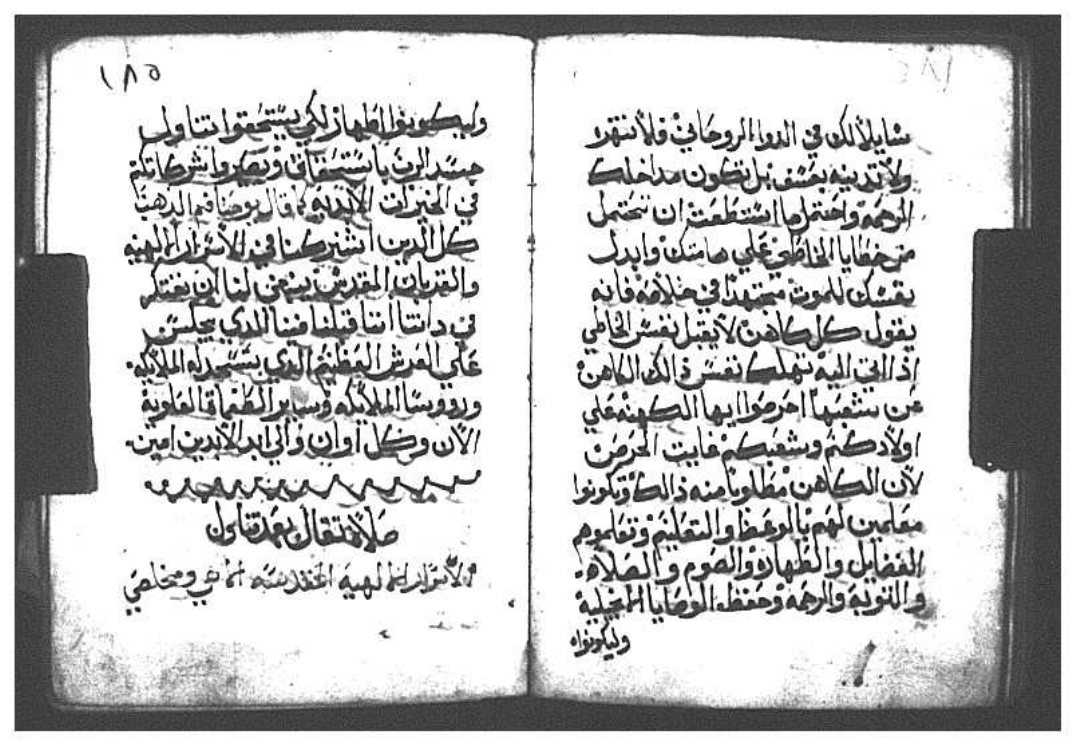 سايلا لك في الدوا الروحاني فلا تنتهره
ولا تدينه بعسف بل تكون مداخلك
الرحمه واحتمل ما استطعت ان تحتمل
من خطايا الخاطي علي هامتك وابدل
نفسك للموت مجتهدا في خلاصه فانه
يقول كل كاهن لا يقبل نفس الخاطي
اذا اتي اليه تهلك نفس ذالك الكاهن
من شعبها احرصوا ايها الكهنه علي
اولادكم وشعبكم غايت الحرص
لان الكاهن مطلوبا منه ذالك وتكونوا
معلمين لهم بالوعظ والتعليم وتعلموهم
الفضايل والطهاره والصوم والصلاه
والتوبه والرحمه وحفظ الوصايا الانجيلية
وليكونواه
١٨٥
وليكونوا اطهار لكي يستحقوا تناول
جسد الرب باستحقاق وتصيروا شركاتهم
في الخيرات الابديه كما قال يوحنا فم الدهب
كل الدين اشتركنا في الاسرار الالهيه
والقربان المقدس ينبغي لنا ان نفتكر
في داتنا اننا قبلنا فينا الدي يجلس
علي العرش العظيم الدي يسجد له الملايكه
وروسا الملايكه وساير الطغمات العلوية
الان وكل اوان والي ابد الابدين امين
صلاة تقال بعد تناول
الاسرار الالهية المقدسه الاهي ومخلصي